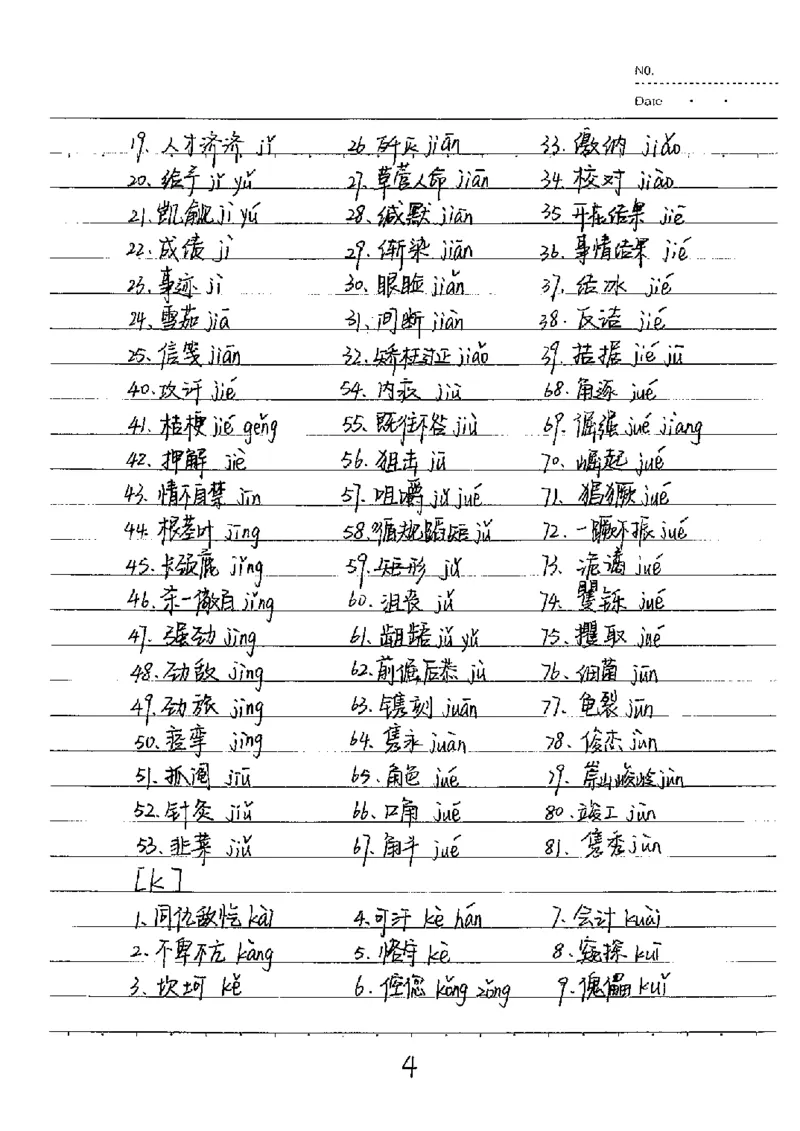 NO.
Date
19. 人才济济 jǐ 26. 歼灭 jiān 33. 缴纳 jiǎo
20. 给予 jǐ yǔ 27. 草菅人命 jiān 34. 校对 jiào
21. 凯觎 jì yú 28. 缄默 jiān 35. 开花结果 jiē
22. 成绩 jì 29. 渐染 jiān 36. 事情结果 jié
23. 事迹 jì 30. 眼睑 jiǎn 37. 结冰 jié
24. 雪茄 jiā 31. 间断 jiàn 38. 反诘 jié
25. 信笺 jiān 32. 矫枉过正 jiǎo 39. 拮据 jié jū
40. 攻讦 jié 54. 内疚 jiù 68. 角逐 jué
41. 桔梗 jié gěng 55. 既往不咎 jiù 69. 倔强 jué jiàng
42. 押解 jiè 56. 狙击 jū 70. 崛起 jué
43. 情不自禁 jīn 57. 咀嚼 jǔ jué 71. 猖獗 jué
44. 根茎叶 jīng 58. 循规蹈矩 jǔ 72. 一蹶不振 jué
45. 长颈鹿 jǐng 59. 矩形 jǔ 73. 诡谲 jué
46. 杀一儆百 jǐng 60. 沮丧 jǔ 74. 矍铄 jué
47. 强劲 jìng 61. 龃龉 jǔ yǔ 75. 攫取 jué
48. 劲敌 jìng 62. 前倨后恭 jù 76. 细菌 jūn
49. 劲旅 jìng 63. 镌刻 juān 77. 龟裂 jūn
50. 痉挛 jìng 64. 隽永 juàn 78. 俊杰 jùn
51. 抓阄 jiū 65. 角色 jué 79. 崇山峻岭 jùn
52. 针灸 jiǔ 66. 口角 jué 80. 竣工 jùn
53. 韭菜 jiǔ 67. 角斗 jué 81. 隽秀 jùn
[K]
1. 同仇敌忾 kài 4. 可汗 kè hán 7. 会计 kuài
2. 不卑不亢 kàng 5. 恪守 kè 8. 窥探 kuī
3. 坎坷 kě 6. 倥偬 kǒng zǒng 9. 傀儡 kuǐ
4